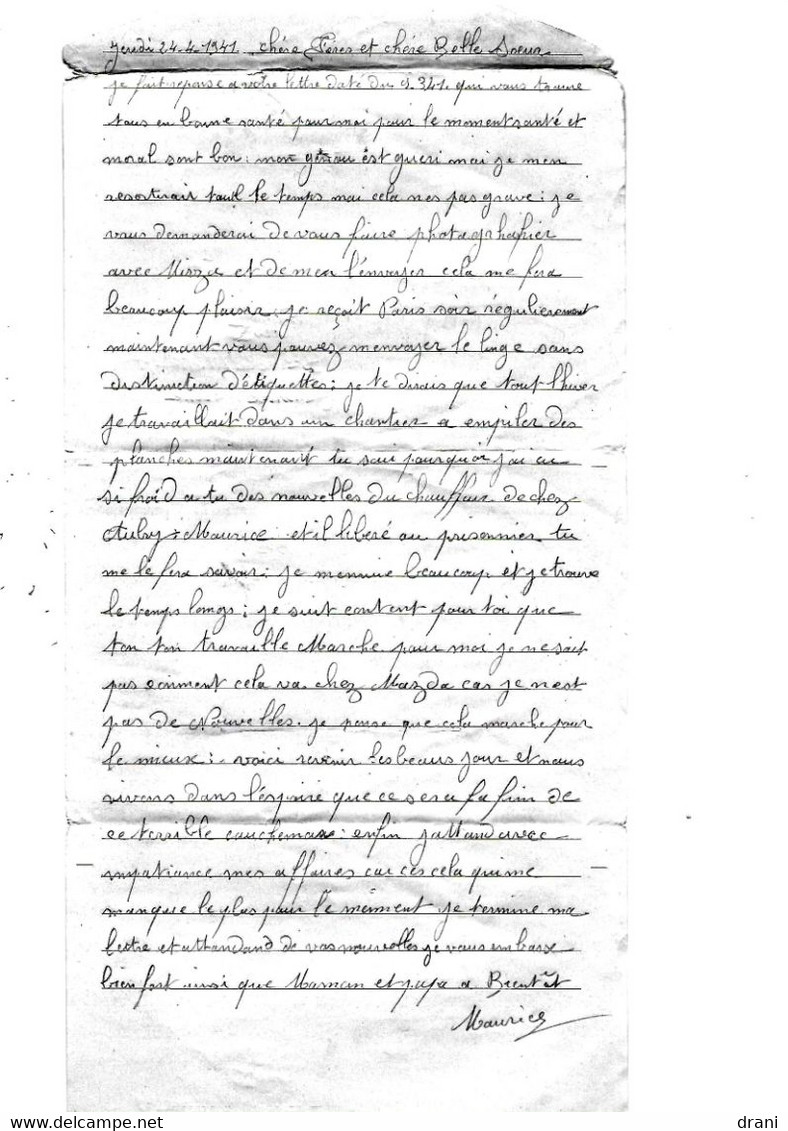 Jeudi 24.4.1941. chére Fères et chére Belle Soeur
je fait reponse a votre lettre daté du 9.341. qui vous trouve
tous en bonne santé pour moi pour le moment santé et
moral sont bon: mon genou est gueri mai je men
resentirait tout le temps mai cela nes pas grave: je
vous demanderai de vous faire photagrhapier
avec Mirza et de men l'envoyer cela me fera
beaucoup plaisir, je reçoit Paris soir régulierement
maintenant vous pouvez menvoyer le linge sans
distinction d'étiquettes: je te dirais que tout l'hiver
je travaillait dans un chantier a empiler des
planches maintenant tu sai pourquoi j'ai eu
si froid a tu des nouvelles du chauffeur de chez
Aubry: Maurice et il liberé ou prisonnier tu
me le fera savoir: je mennuie beaucoup et je trouve
le temps longs; je suit content pour toi que
ton ton travaille Marche pour moi je ne sait
pas comment cela va chez Mazda car je nest
pas de Nouvelles. je pense que cela marche pour
le mieux: voici revenir les beaus jour et nous
vivons dans l'espoire que ce sera la fin de
ce terrible cauchemar: enfin j'attend avec
impatiance mes affaires car ces cela qui me
manque le plus pour le moment je termine ma
lettre et attandand de vos nouvelles je vous embrasse
bien fort insi que Maman et papa a Bientôt
Maurice
drani